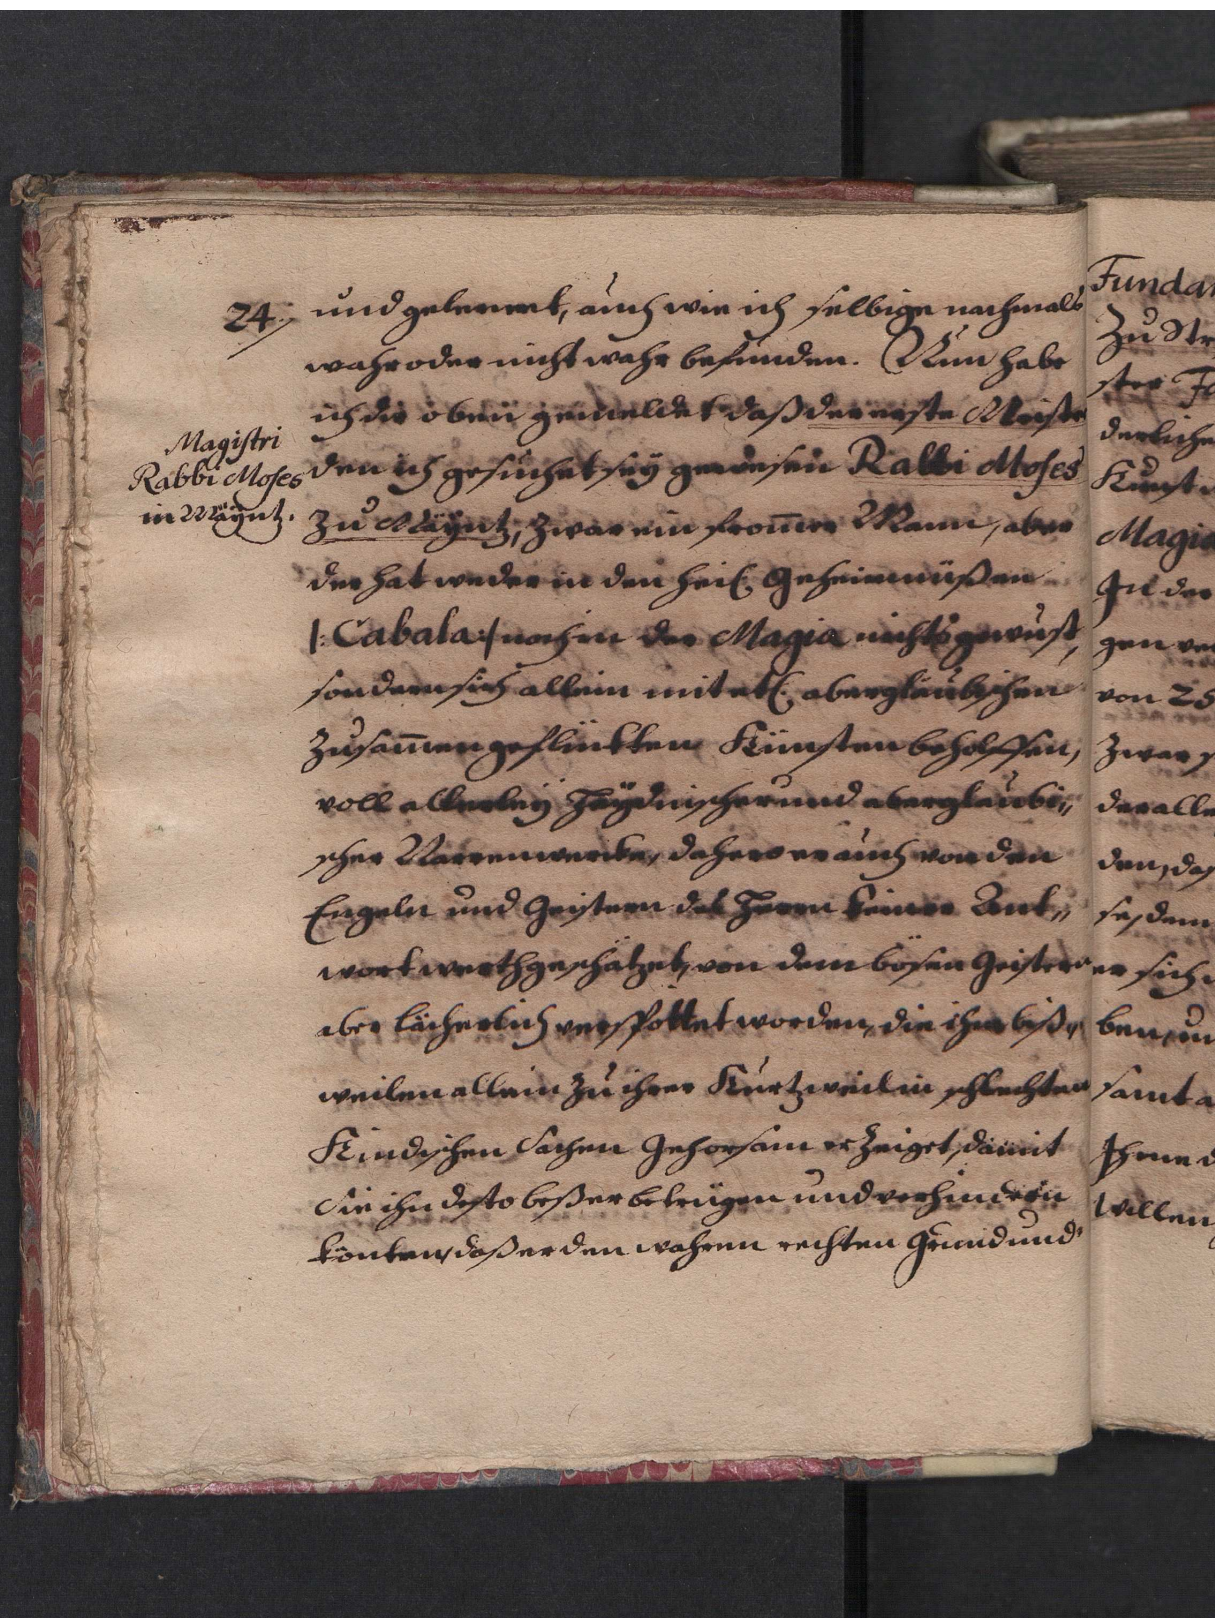 24.
Magistri
Rabbi Moses
in Mäyntz.
und gelernet, auch wie ich selbige nachmals
wahr oder nicht wahr befunden. Nun habe
ich dir oben gemeldet daß der erste Meister
den ich gesuchet sey gewesen Rabbi Moses
zu Mäyntz, zwar ein from̄er Mann, aber
der hat weder in den heil. Geheimnüßen
/: Cabala :/ noch in der Magia nichts gewust,
sondern sich allein mit etl. abergläubischen
zusam̄en geflickten Künsten beholffen,
voll allerley Heydnischer und aberglaubi„
scher Narrenwercke, dahero er auch von den
Engeln und Geistern des Herrn keiner Ant„
wort werth geschätzet, von dem bösen Geistern
aber lächerlich verspottet worden, die ihm biß„
weilen allein zu ihrer Kurtzweil in schlechten
Kindischen Sachen Gehorsam erzeiget, damit
Sie ihn desto beßer betrügen und verhindern
könten, daß er den wahren rechten Grund und
Zu
Kunst
Magia
In der
gen
von
zwar
der alle
den, das
se, dem
er sich
ben, un
samt a
Ihme d
willen